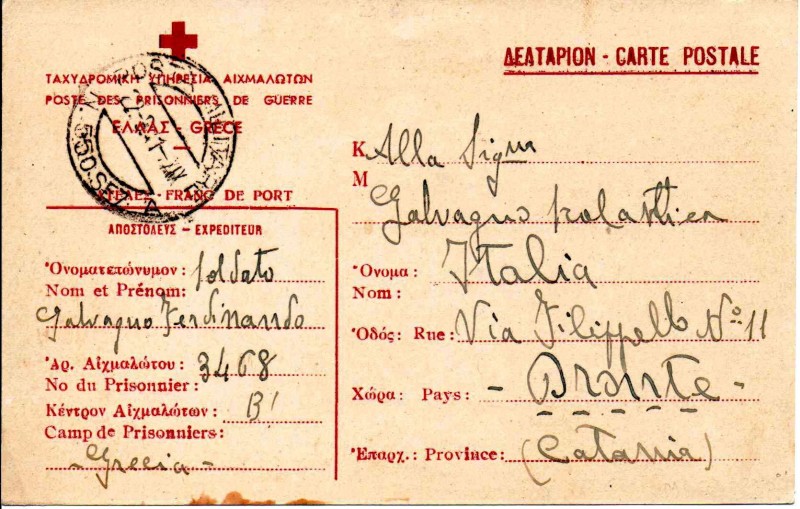 ΔΕΛΤΑΡΙΟΝ - CARTE POSTALE
ΤΑΧΥΔΡΟΜΙΚΗ ΥΠΗΡΕΣΙΑ ΑΙΧΜΑΛΩΤΩΝ
POSTE DES PRISONNIERS DE GUERRE
ΕΛΛΑΣ - GRECE
ΑΤΕΛΕΣ - FRANC DE PORT
550 SEZ. A
ΑΠΟΣΤΟΛΕΥΣ - EXPEDITEUR
Ὀνοματεπώνυμον: Soldato
Nom et Prénom:
Galvagno Ferdinando
Ἀρ. Αἰχμαλώτου: 3468
No du Prisonnier:
Κέντρον Αἰχμαλώτων: B'
Camp de Prisonniers:
- Grecia -
Κ Alla Sigra
M
Galvagno
Ὄνομα: Italia
Nom:
Ὁδός: Rue: Via Filippello No 11
Χώρα: Pays: - Bronte -
Ἐπαρχ.: Province: (Catania)